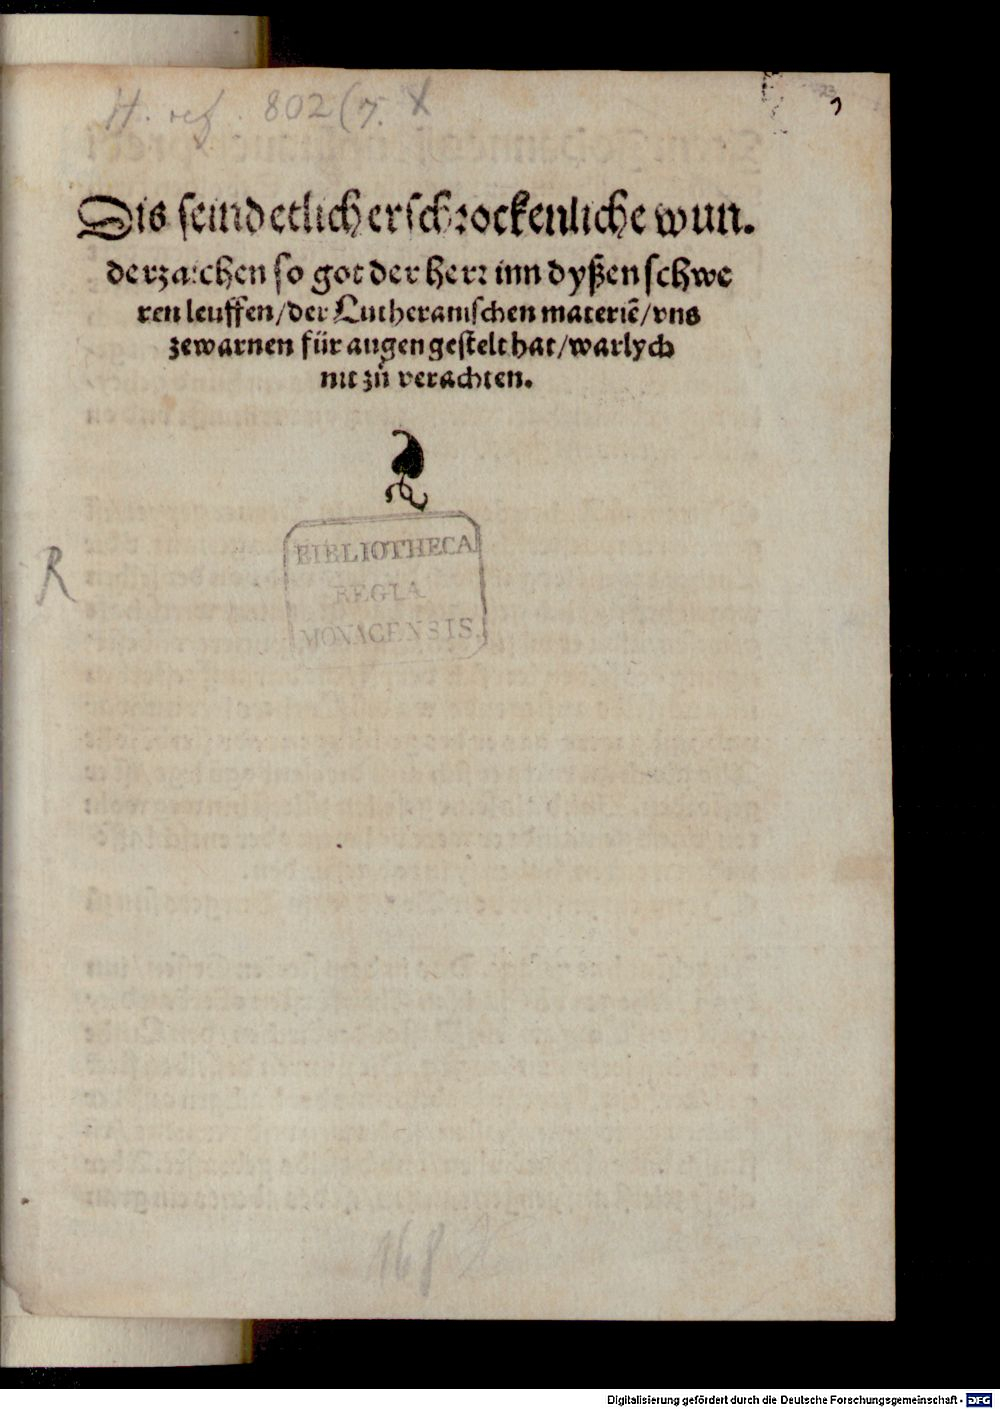 H. ref. 802 (7. X
Dis seind etlich erschrockenliche wun.
derzaichen so got der herr inn dyßen schwe
ren leuffen/der Lutheranischen materiē/vns
zewarnen für augen gestelt hat/warlych
nit zů verachten.
BIBLIOTHECA
REGIA
MONACENSIS.
R
168
Digitalisierung gefördert durch die Deutsche Forschungsgemeinschaft - DFG